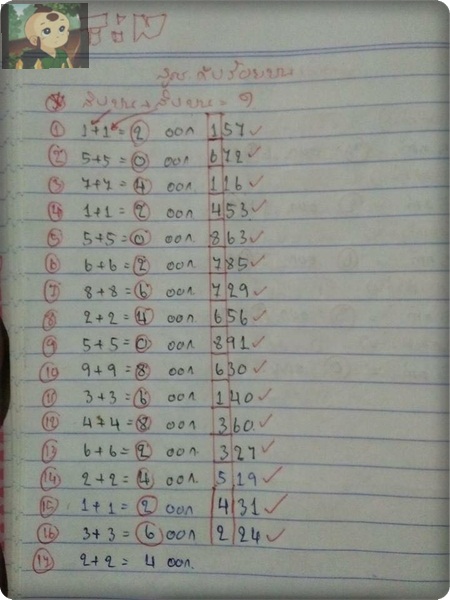 สูตร.ดับร้อยบน
สิบบน + สิบบน = ๑
① 1+1 = 2 ออก 157 ✓
② 5+5 = 0 ออก 672 ✓
③ 7+7 = 4 ออก 116 ✓
④ 1+1 = 2 ออก 453 ✓
⑤ 5+5 = 0 ออก 863 ✓
⑥ 6+6 = 2 ออก 785 ✓
⑦ 8+8 = 6 ออก 729 ✓
⑧ 2+2 = 4 ออก 656 ✓
⑨ 5+5 = 0 ออก 891 ✓
⑩ 9+9 = 8 ออก 630 ✓
⑪ 3+3 = 6 ออก 140 ✓
⑫ 4+4 = 8 ออก 360. ✓
⑬ 6+6 = 2 ออก 327 ✓
⑭ 2+2 = 4 ออก 519 ✓
⑮ 1+1 = 2 ออก 431 ✓
⑯ 3+3 = 6 ออก 224 ✓
⑰ 2+2 = 4 ออก.